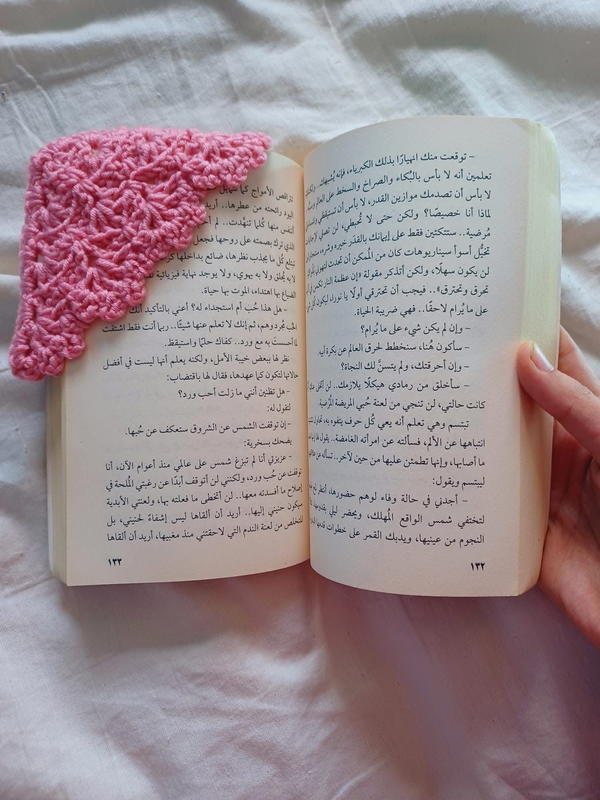 – توقعت منك انهيارًا بذلك الكبرياء، فإنه يُشبهك.. ولكنك
تعلمين أنه لا بأس بالبُكاء والصراخ والسخط على العالم
لا بأس أن تصدمك موازين القدر، لا بأس أن تستيقظي
لماذا أنا خصيصًا؟ ولكن حتى لا تُحبطي، لن تصلي لإجابات
مُرضية.. ستتكئين فقط على إيمانك بالقدَر خيره وشره
تخيُّل أسوأ سيناريوهات كان من المُمكن أن تحدث
لن يكون سهلًا، ولكن أتذكر مقولة «إن عظمة النار
تحرق وتحترق».. فيجب أن تحترقي أولًا يا نوراء، ليكون كل
على ما يُرام لاحقًا.. فهي ضريبة الحياة.
– وإن لم يكن شيء على ما يُرام؟
– سأكون هُنا، سنخطط لحرق العالم عن بكرة أبيه.
– وإن أحرقتك، ولم يتسنَّ لك النجاة؟
– سأخلق من رمادي هيكلًا يلازمك.. لن أتخلى
كانت حالتي، لن تنجي من لعنة حبي المريضة المُرضية.
تبتسم وهي تعلم أنه يعي كُل حرف يتفوه به،
انتباهها عن الألم، فسألته عن امرأته الغامضة..
ما أصابها، وإنها تطمئن عليها من حين لآخر..
ليبتسم ويقول:
– أجدني في حالة وفاء لوهم حضورها، أنتظر
لتختفي شمس الواقع المُهلك، ويحضر ليلي
النجوم من عينيها، ويدبك القمر على خطوات
١٣٢
تراقص الأمواج كما
اليود رائحته من عطرها،
أنفس منها كُلما تنهَّدت..
الذي ترك بصمته على روحها فجعل
يبتلع كُل ما يجذب نظرها، ضائع بداخلها
لا هو يُحلق ولا به يهوي، ولا يوجد نهاية فيزيائية
الضياع بها اهتداء، الموت بها حياة.
– هل هذا حُب أم استجداء له؟ أعني بالتأكيد أنك
الحب مُجرد وهم، ثم إنك لا تعلم عنها شيئًا.. ربما أنت فقط اشتقت
لما أحسستَ به مع ورد.. كفاك حلمًا واستيقظ.
نظر لها ببعض خيبة الأمل، ولكنه يعلم أنها ليست في أفضل
حالاتها لتكون كما عهدها، فقال لها باقتضاب:
– هل تظنين أنني ما زلت أحب ورد؟
لتقول له:
– إن توقفت الشمس عن الشروق ستعكف عن حُبها.
يضحك بسخرية:
– عزيزتي أنا لم تبزغ شمس على عالمي منذ أعوام الآن، أنا
توقفت عن حُب ورد، ولكني لن أتوقف أبدًا عن رغبتي المُلحة في
إصلاح ما أفسدته معها.. لن أتخطى ما فعلته بها، ولعنتي الأبدية
سيكون حنيني إليها.. أريد أن ألقاها ليس إشفاءً لحنيني، بل
للتخلص من لعنة الندم التي لاحقتني منذ مغيبها، أريد أن ألقاها
١٣٣